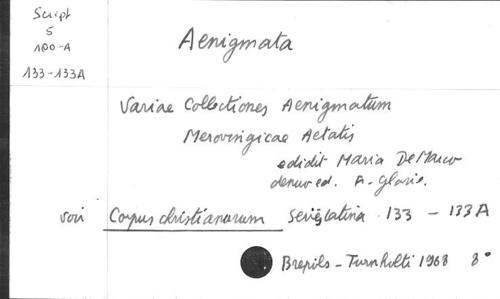 Script
5
100-A
133-133A
Aenigmata
Variae Collectiones Aenigmatum
Merovingicae Aetatis
edidit Maria De Marco
denuo ed. A. Glorie.
voir Corpus christianorum Series latina 133 - 133A
Brepols - Turnholti 1968 8°